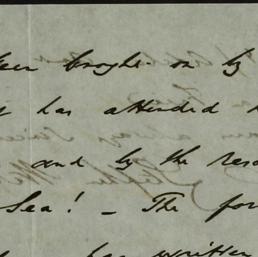 been brought on by
has attended
and by the
Sea! - The for
has written